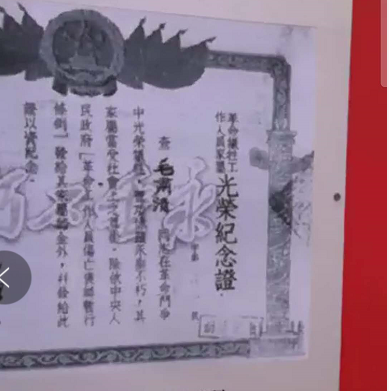 革命犧牲工
作人員家屬
光榮紀念證
字第 號
查毛 同志在革命鬥爭
中光榮犧牲，豐功偉績永垂不朽，其
家屬當受社會上之尊崇。除依中央人
民政府「革命工作人員傷亡褒卹暫行
條例」發給其家屬卹金外，幷發給此
證以資紀念。